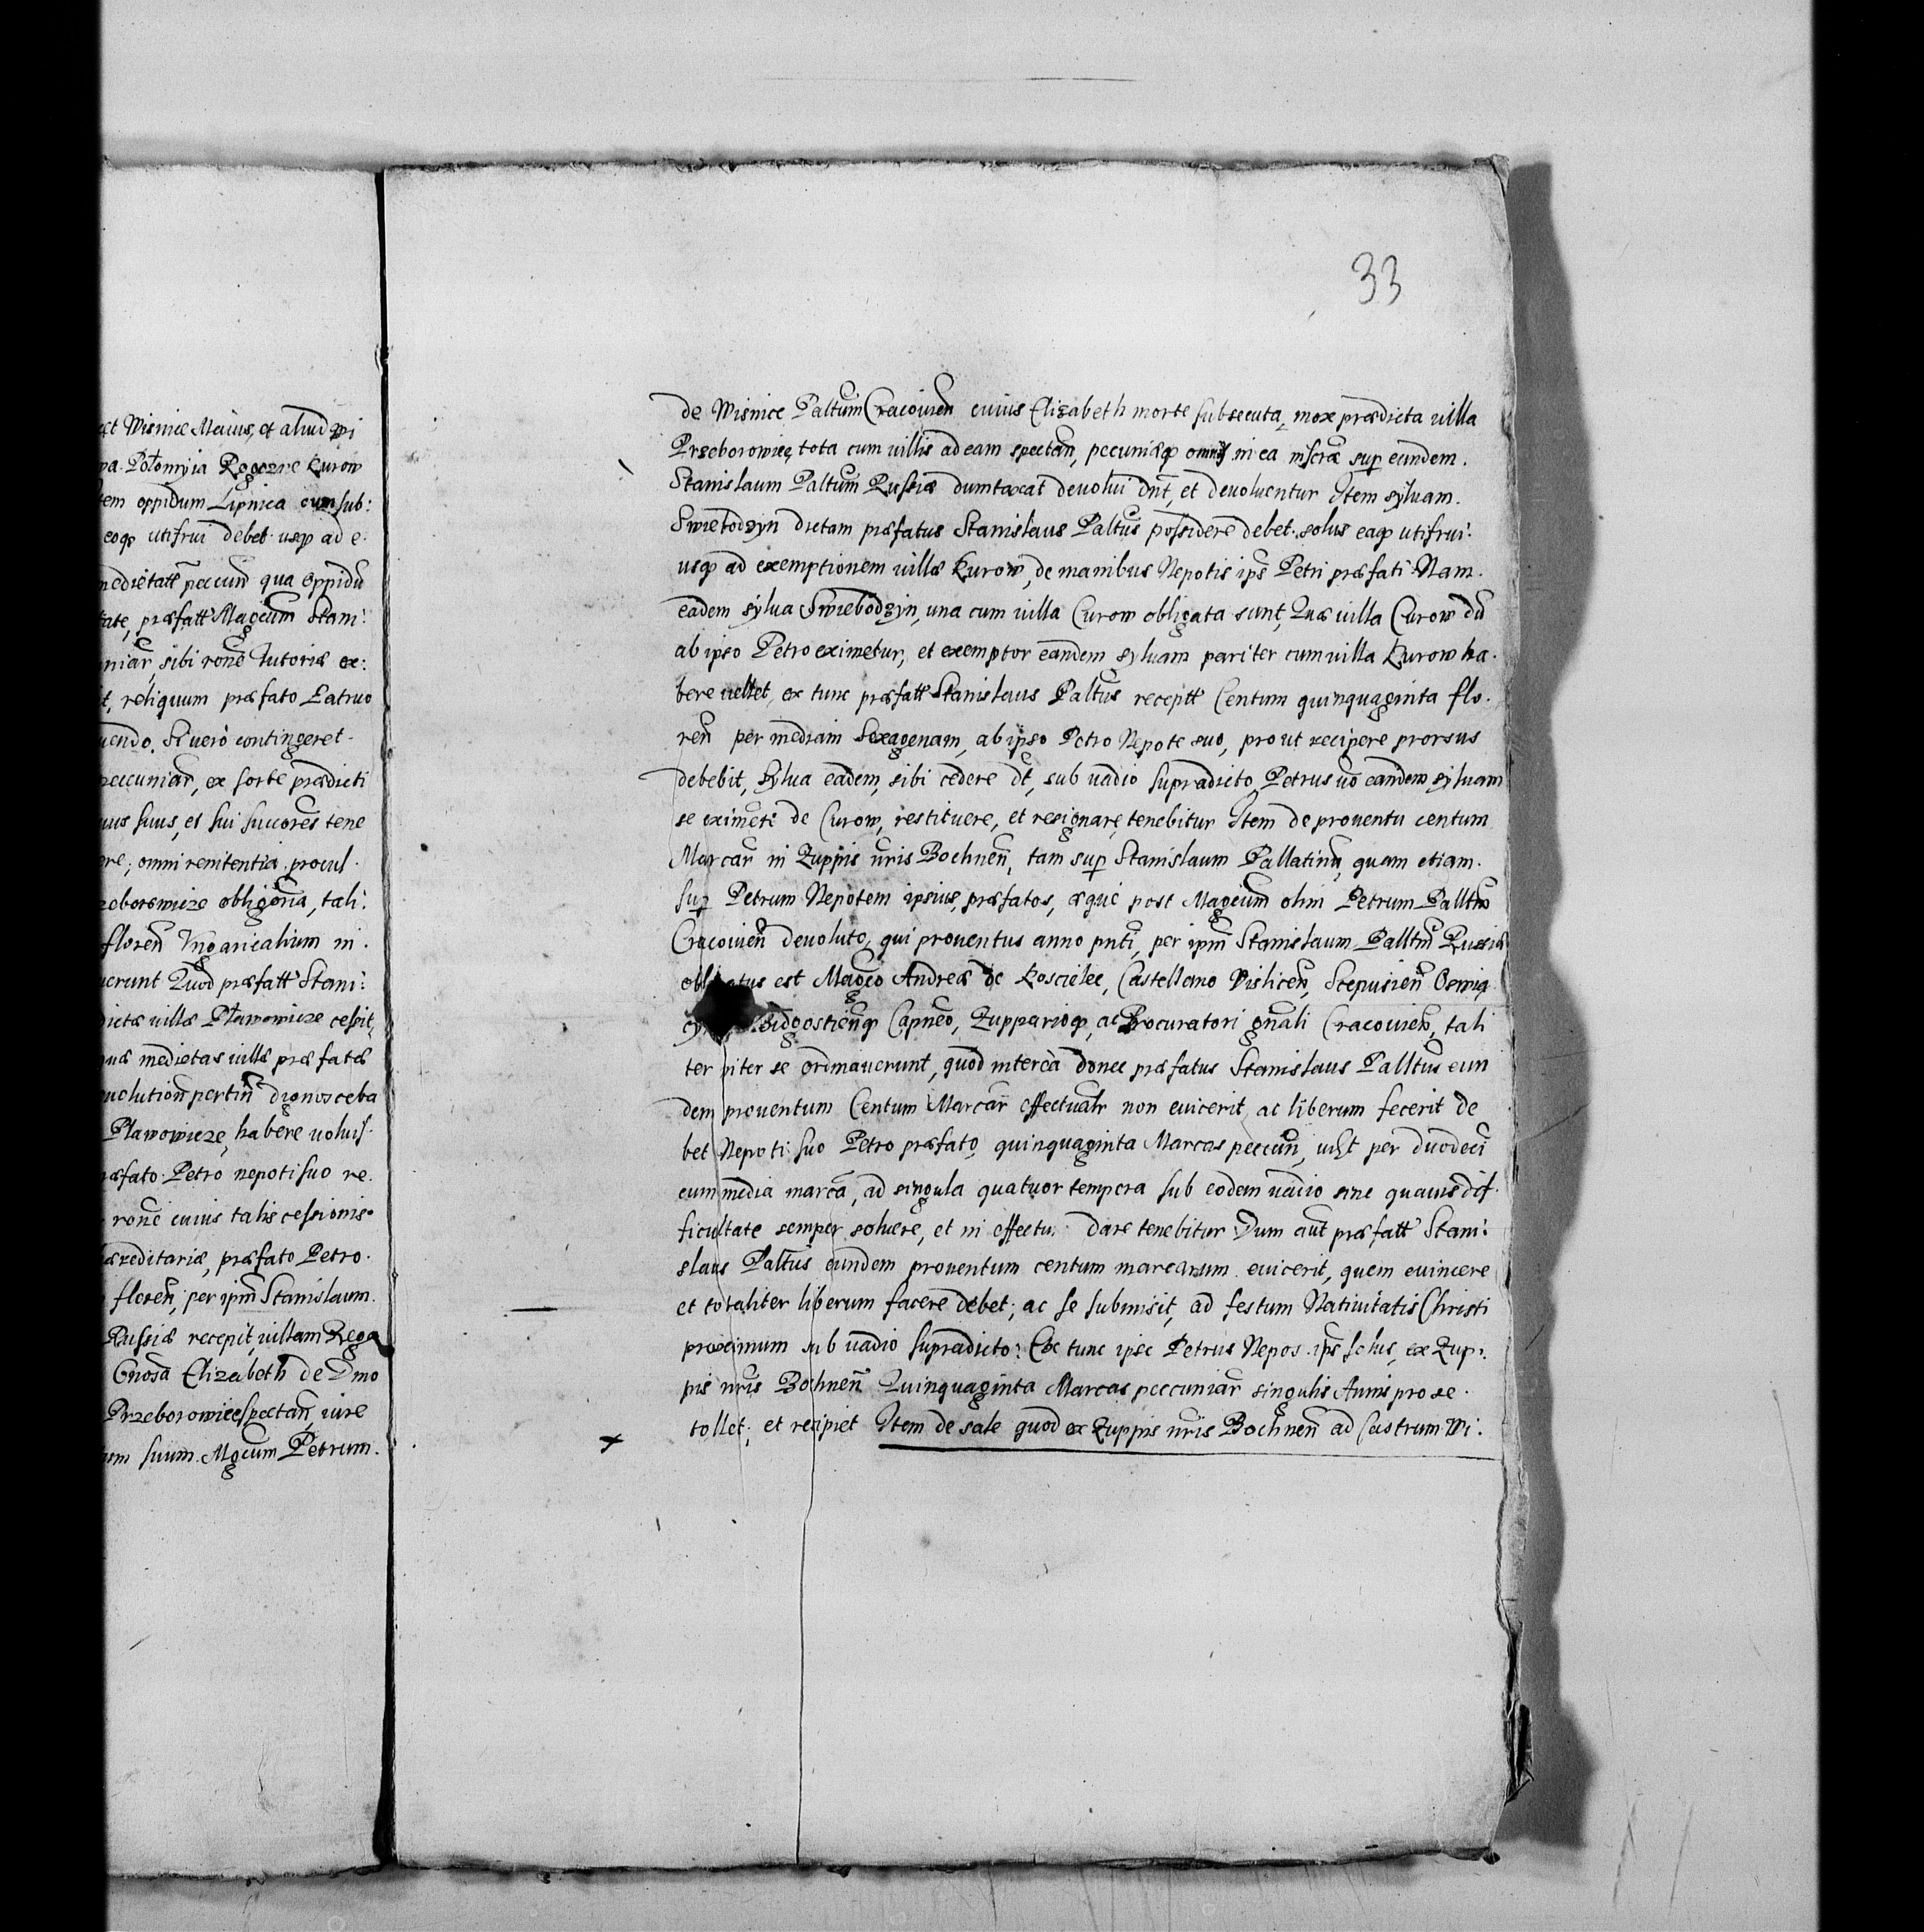 ct Wisnice Maius, et aliud Wi
wa. Połomyia Rogozie Kurow
tem oppidum Lipnica cum sub:
eoqꝫ utifrui debet usqꝫ ad e:
medietate pecun̄ qua oppidū
tate, præfatt Magcum Stani:
niar̄, sibi ron̄e Tutoriæ ex:
t, reliquum præfato Patruo
uendo. Si uero contingeret
pecuniar̄, ex sorte prædicti
uus suus, et sui succores tene
ere; omni renitentia procul.
zeborowicze obligōria, tali:
floren̄ Vngaricalium in.
uerunt Quod præfatt Stani:
dictæ uillæ Pławowicze cessit,
quæ medietas uillæ præfatæ
euolution̄ pertin̄ dignosceba
Plawowicze, habere uoluis.
æfato Petro nepoti suo re.
ron̄e cuius talis cessionis.
æreditariæ, præfato Petro.
floren̄, per ipm̄ Stanislaum.
Russiæ recepit, uillam Rega
Gnosa Elizabeth de Dmo
Przeborowice spectan̄, iure
um suum. Mgcum Petrum.
33
de Wisnice Paltum Cracouien̄ cuius Elizabeth morte subsecuta, mox prædicta uilla
Przeborowice, tota cum uillis ad eam spectan̄, pecuniæqꝫ omnis in ea inscræ sup̄ eundem.
Stanislaum Paltum Russiæ dumtaxat deuolui dn̄t, et deuoluentur Item syluam.
Swiebodzyn dictam præfatus Stanislaus Paltus possidere debet. solus eaqꝫ utifrui.
usqꝫ ad exemptionem uillæ Kurow, de manibus Nepotis ips̄ Petri præfati Nam.
eadem sylua Swiebodzyn, una cum uilla Curow obligata sunt, Quæ uilla Curow dū
ab ipso Petro eximetur, et exemptor eandem syluam pariter cum uilla Kurow ha.
bere uellet, ex tunc præfatt Stanislaus Paltus receptt Centum quinquaginta flo.
ren̄ per mediam sexagenam, ab ipso Petro Nepote suo, prout recipere prorsus
debebit, Sylua eadem, sibi cedere dt̄, sub uadio supradicto, Petrus uō eandem syluam
se eximeti de Curow, restituere, et resignare, tenebitur Item de prouentu centum
Marcar̄ in Zuppis nr̄is Bochnen̄, tam sup̄ Stanislaum Pallatinū, quam etiam.
sup̄ Petrum Nepotem ipsius, præfatos, æque post Magcum olim Petrum Palltm
Cracouien̄ deuoluto, qui prouentus anno pn̄ti, per ipm̄ Stanislaum Palltm̄ Russiæ
obl atus est Magco Andreæ de Koscielec, Castellano Vislicen̄, Scepusien̄ Oswią
cy Bidgostien̄qꝫ Capneo, Zupparioqꝫ, ac Procuratori gn̄ali Cracouien̄, tali
ter inter se ordinauerunt, quod interea donec præfatus Stanislaus Palltus eun
dem prouentum Centum Marcar̄ effectualr̄ non euicerit, ac liberum fecerit de
bet Nepoti suo Petro præfato, quinquaginta Marcas peccun̄, uidlt per duodeci
cum media marca, ad singula quatuor tempora sub eodem uadio sine quauis dif.
ficultate semper soluere, et in effectu dare tenebitur Dum aut̄ præfatt Stani:
slaus Paltus eundem prouentum centum marcarum euicerit, quem euincere
et totaliter liberum facere debet; ac se submisit, ad festum Natiuitatis Christi
proximum sub uadio supradicto: Ex tunc ipse Petrus Nepos ips̄ solus, ex Zup:
pis nr̄is Bochnen̄ Quinquaginta Marcas pecuniar̄ singulis Annis pro se.
tollet; et recipiet Item de sale quod ex Zuppis nr̄is Bochnen̄ ad Castrum Wi.